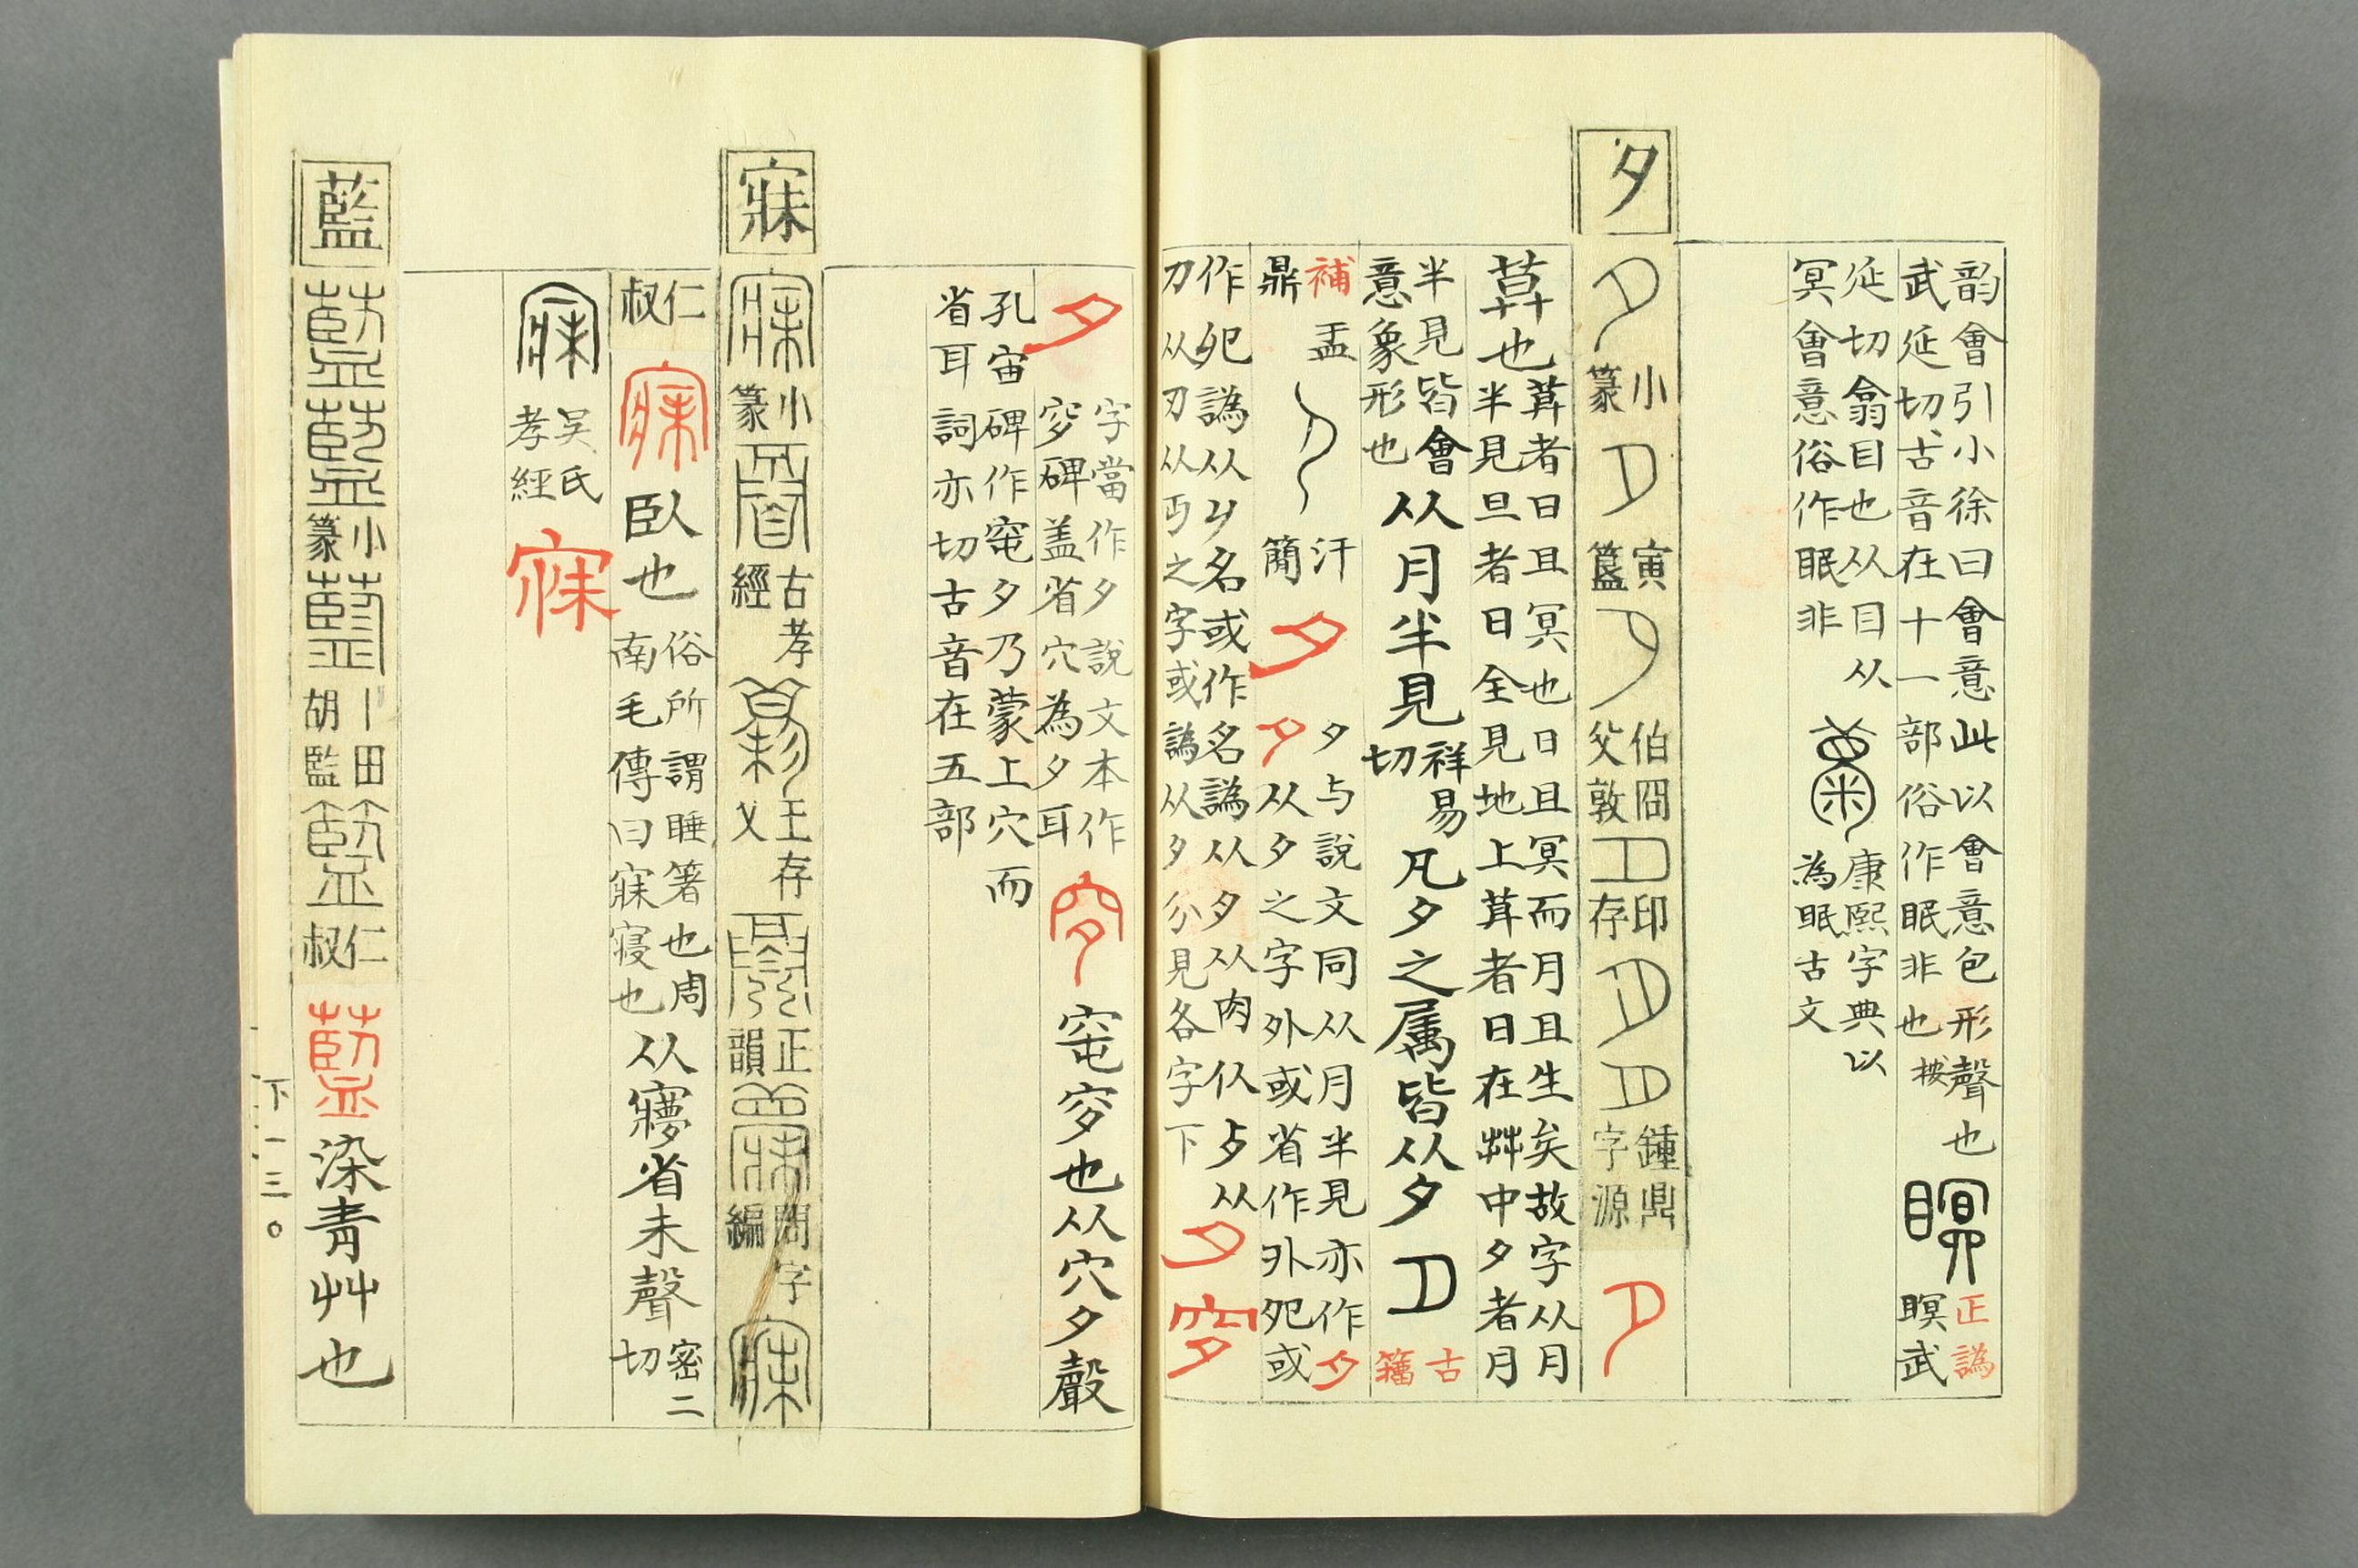 韵會引小徐曰會意此以會意包形聲也 正譌
武延切古音在十一部俗作眠非也 按 瞑武
延切翕目也从目从
冥會意俗作眠非
康熙字典以
為眠古文
夕
小篆
寅簋
伯囧父敦
印存
鍾鼎字源
茻也
茻者日且冥也日且冥而月且生矣故字从月
半見旦者日全見地上茻者日在茻中夕者月
半見皆會
意象形也
从月半見
祥易切
凡夕之属皆从夕
古籀
補
盂鼎
汗簡
夕
夕与說文同从月半見亦作夕
夕从夕之字外或省作外夗或
作夗譌从夕名或作名譌从夕从肉仈歺从
刀从刃从丏之字或譌从夕分見各字下
夕
穸
夕
字當作夕說文本作
穸碑盖省穴為夕耳
孔宙碑作窀夕乃蒙上穴而
省耳詞亦切古音在五部
穸
窀穸也从穴夕聲
寐
小篆
古孝經
王存乂
正韻
問字編
仁叔
寐
臥也
俗所謂睡箸也周
南毛傳曰寐寢也
从㝱省未聲
密二切
吴氏孝經
寐
藍
小篆
田胡監
仁叔
藍
染青艸也
下一三〇